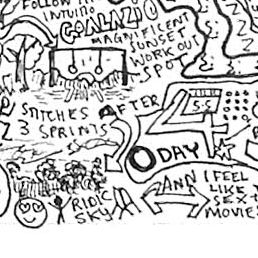 FOLLOW
INTUITO
GOALAZO
MAGNIFICENT
SUNSET
WORK OUT
SPOT
STITCHES
3 SPRINTS
AFTER
5.5
O DAY
RIDIC
SKY
ANN
I FEEL
LIKE
SEXT
MOVIE